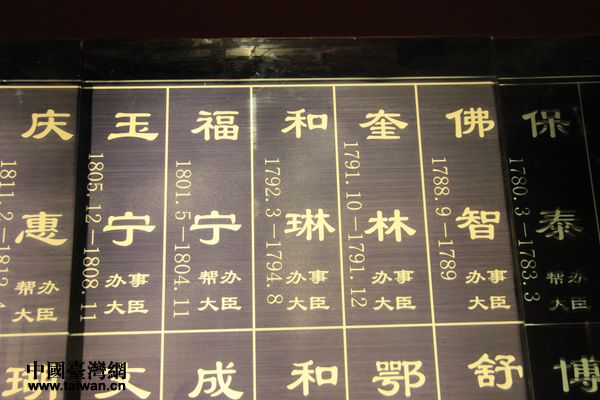 保泰
1780.3—1783.3
帮办
大臣
佛智
1788.9—1789
办事
大臣
奎林
1791.10—1791.12
办事
大臣
和琳
1792.3—1794.8
办事
大臣
福宁
1801.5—1804.11
帮办
大臣
玉宁
1805.12—1808.11
办事
大臣
庆惠
1811.2—1812.4
帮办
大臣
博
舒
鄂
和
成
文
中國臺灣網
www.taiwan.cn